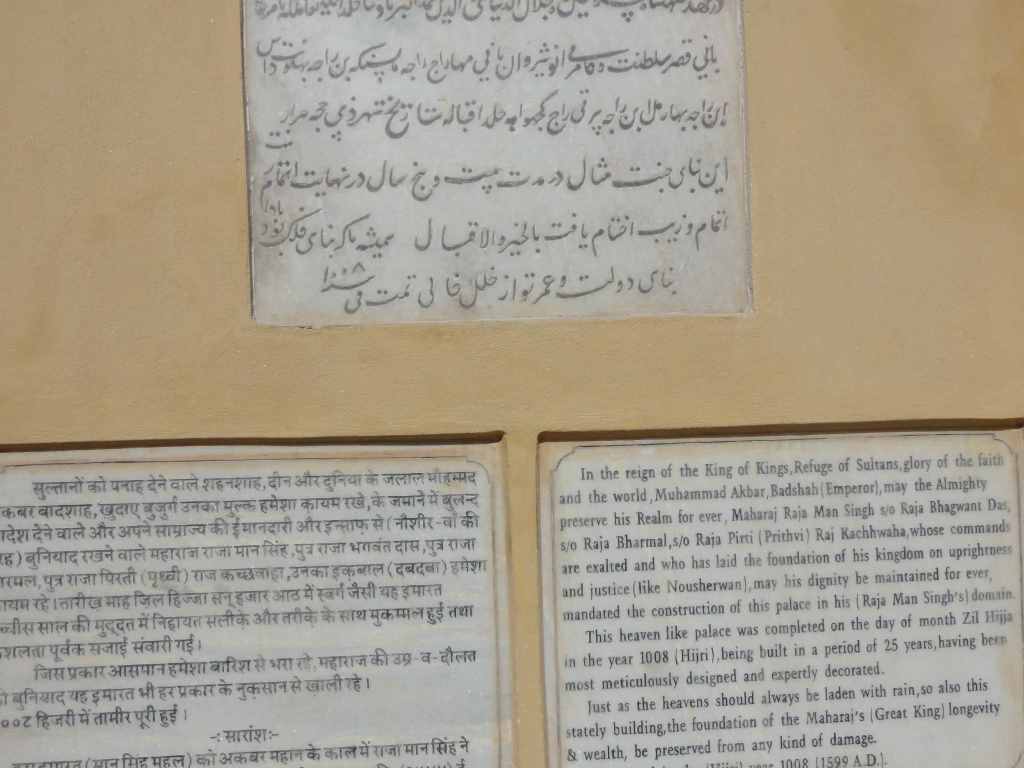 بانی قصر سلطنت و کامرانی انوشیروان ثانی مهاراج راجه مانسنکه بن راجه بهکونت داس
ابن راجه بهارمل ابن راجه پرتی راج کچهواهه خلد اقباله بتاریخ شهر ذی حجه هزار
این بنای جنت مثال در مدت بیست و پنج سال در نهایت
اتمام و زیب اختتام یافت بالخیر والاقبال همیشه تا که بنای فلک بود
بنای دولت و عمر تو از خلل خالی تمت فی ١٠٠٨
सुल्तानों को पनाह देने वाले शहनशाह,दीन और दुनिया के जलाल मौहम्मद
कबर बादशाह,खुदाए बुजुर्ग उनका मुल्क हमेशा कायम रखे,के जमाने में बुलन्द
ादेश देने वाले और अपने साम्राज्य की ईमानदारी और इन्साफ़ से (नौशीर-वॉ की
रह) बुनियाद रखने वाले महाराज राजा मान सिंह,पुत्र राजा भगवंत दास,पुत्र राजा
ारमल,पुत्र राजा पिरती (पृथ्वी) राज कच्छवाहा,उनका इक़बाल (दबदबा) हमेशा
ायम रहे।तारीख माह ज़िल हिज्जा सन् हजार आठ में स्वर्ग जैसी यह इमारत
च्चीस साल की मुद्दत में निहायत सलीके और तरीके के साथ मुकम्मल हुई तथा
ुशलता पूर्वक सजाई संवारी गई।
जिस प्रकार आसमान हमेशा बारिश से भरा रहे,महाराज की उम्र-व-दौलत
ी बुनियाद यह इमारत भी हर प्रकार के नुक़सान से खाली रहे।
००८ हिजरी में तामीर पूरी हुई।
-:सारांश:-
(मान सिंह महल) को अकबर महान के काल में राजा मान सिंह ने
In the reign of the King of Kings,Refuge of Sultans,glory of the faith
and the world, Muhammad Akbar,Badshah(Emperor),may the Almighty
preserve his Realm for ever, Maharaj Raja Man Singh s/o Raja Bhagwant Das,
s/o Raja Bharmal,s/o Raja Pirti (Prithvi) Raj Kachhwaha,whose commands
are exalted and who has laid the foundation of his kingdom on uprightness
and justice (like Nousherwan),may his dignity be maintained for ever,
mandated the construction of this palace in his (Raja Man Singh's) domain.
This heaven like palace was completed on the day of month Zil Hijja
in the year 1008 (Hijri),being built in a period of 25 years,having been
most meticulously designed and expertly decorated.
Just as the heavens should always be laden with rain,so also this
stately building,the foundation of the Maharaj's (Great King) longevity
& wealth, be preserved from any kind of damage.
(Hijri) year 1008 (1599 A.D.).